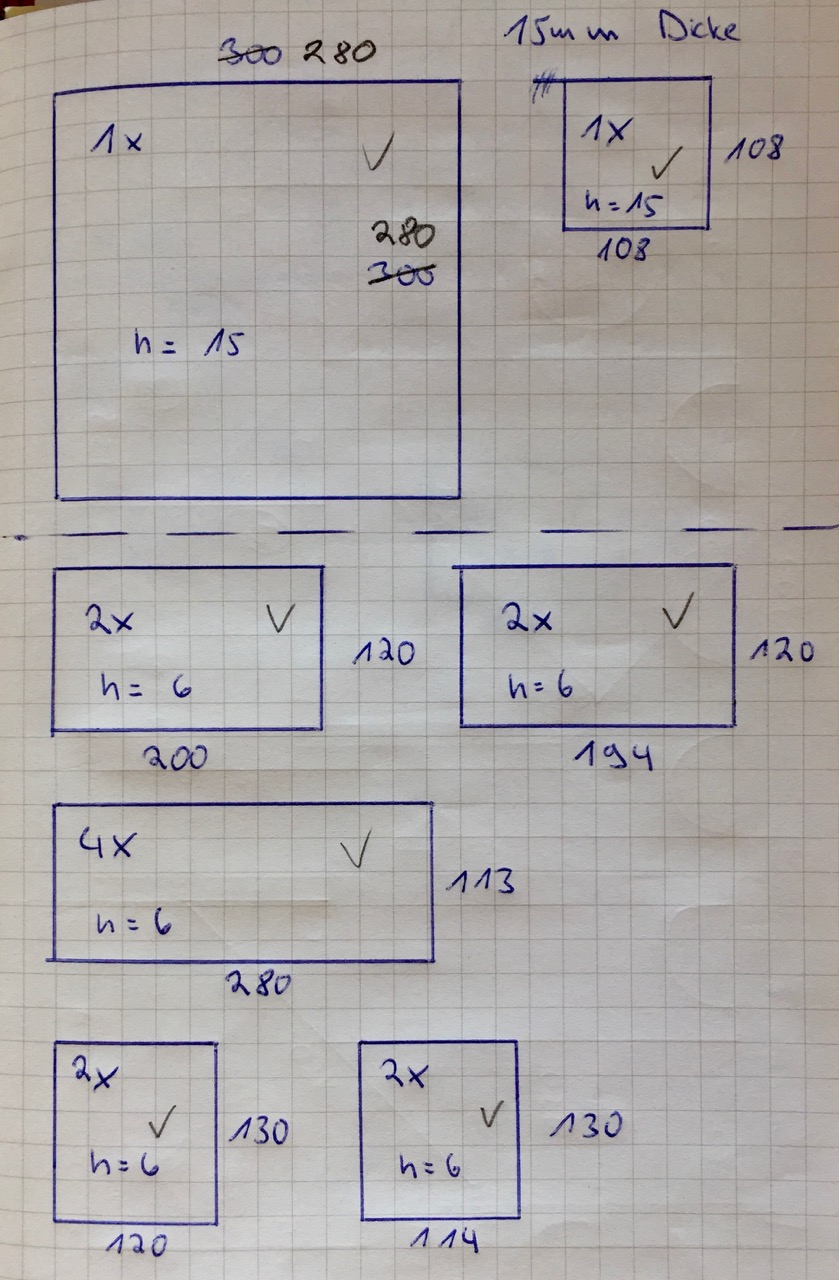 15mm Dicke
300 280
1x
280
300
h = 15
1x
108
h = 15
108
2x
h = 6
120
200
2x
h = 6
120
194
4x
h = 6
113
280
2x
h = 6
130
120
2x
h = 6
130
114